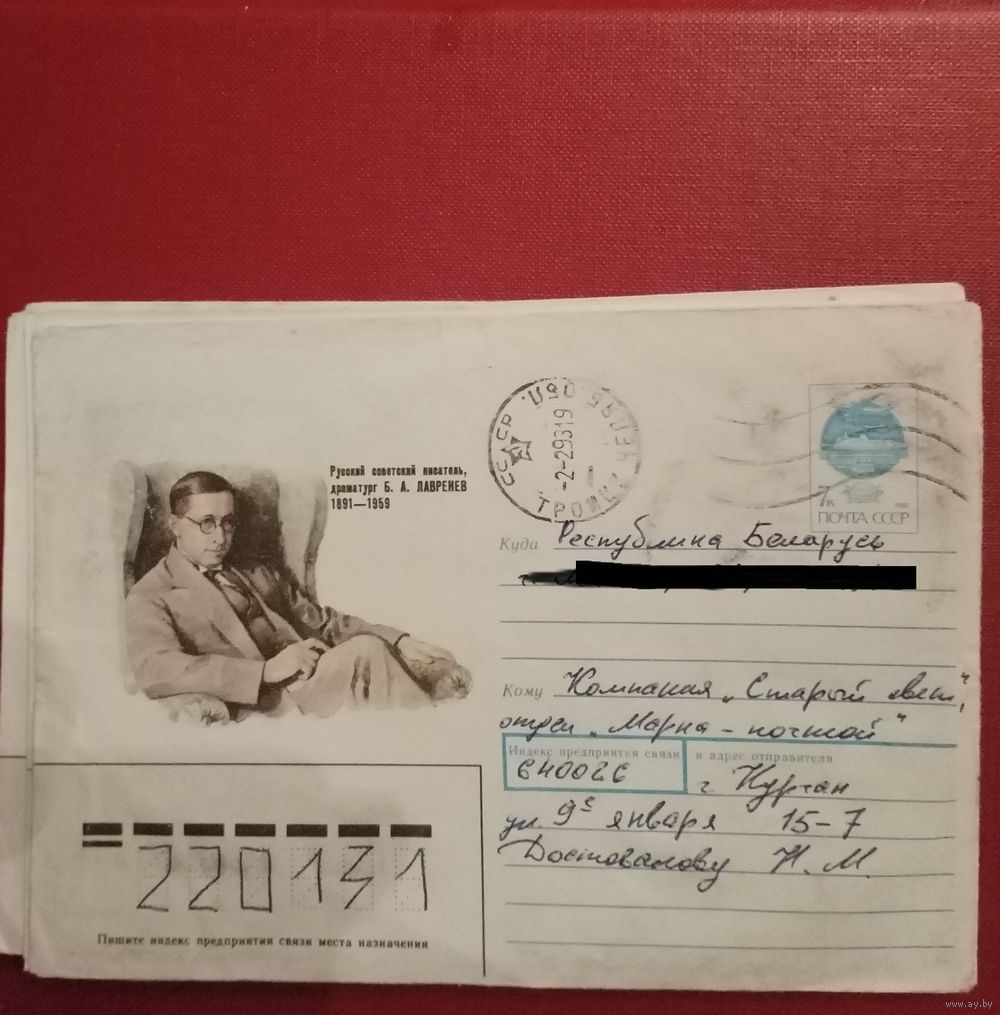 Русский советский писатель,
драматург Б. А. ЛАВРЕНЕВ
1891—1959
СССР
7к
ПОЧТА СССР
Куда Республика Беларусь
г.
Кому Компания „Старый свет",
отдел „Марка - почтой"
Индекс предприятия связи и адрес отправителя
640026
г. Курган
ул. 9е января 15-7
Достовалову Н. М.
220131
Пишите индекс предприятия связи места назначения
www.ay.by